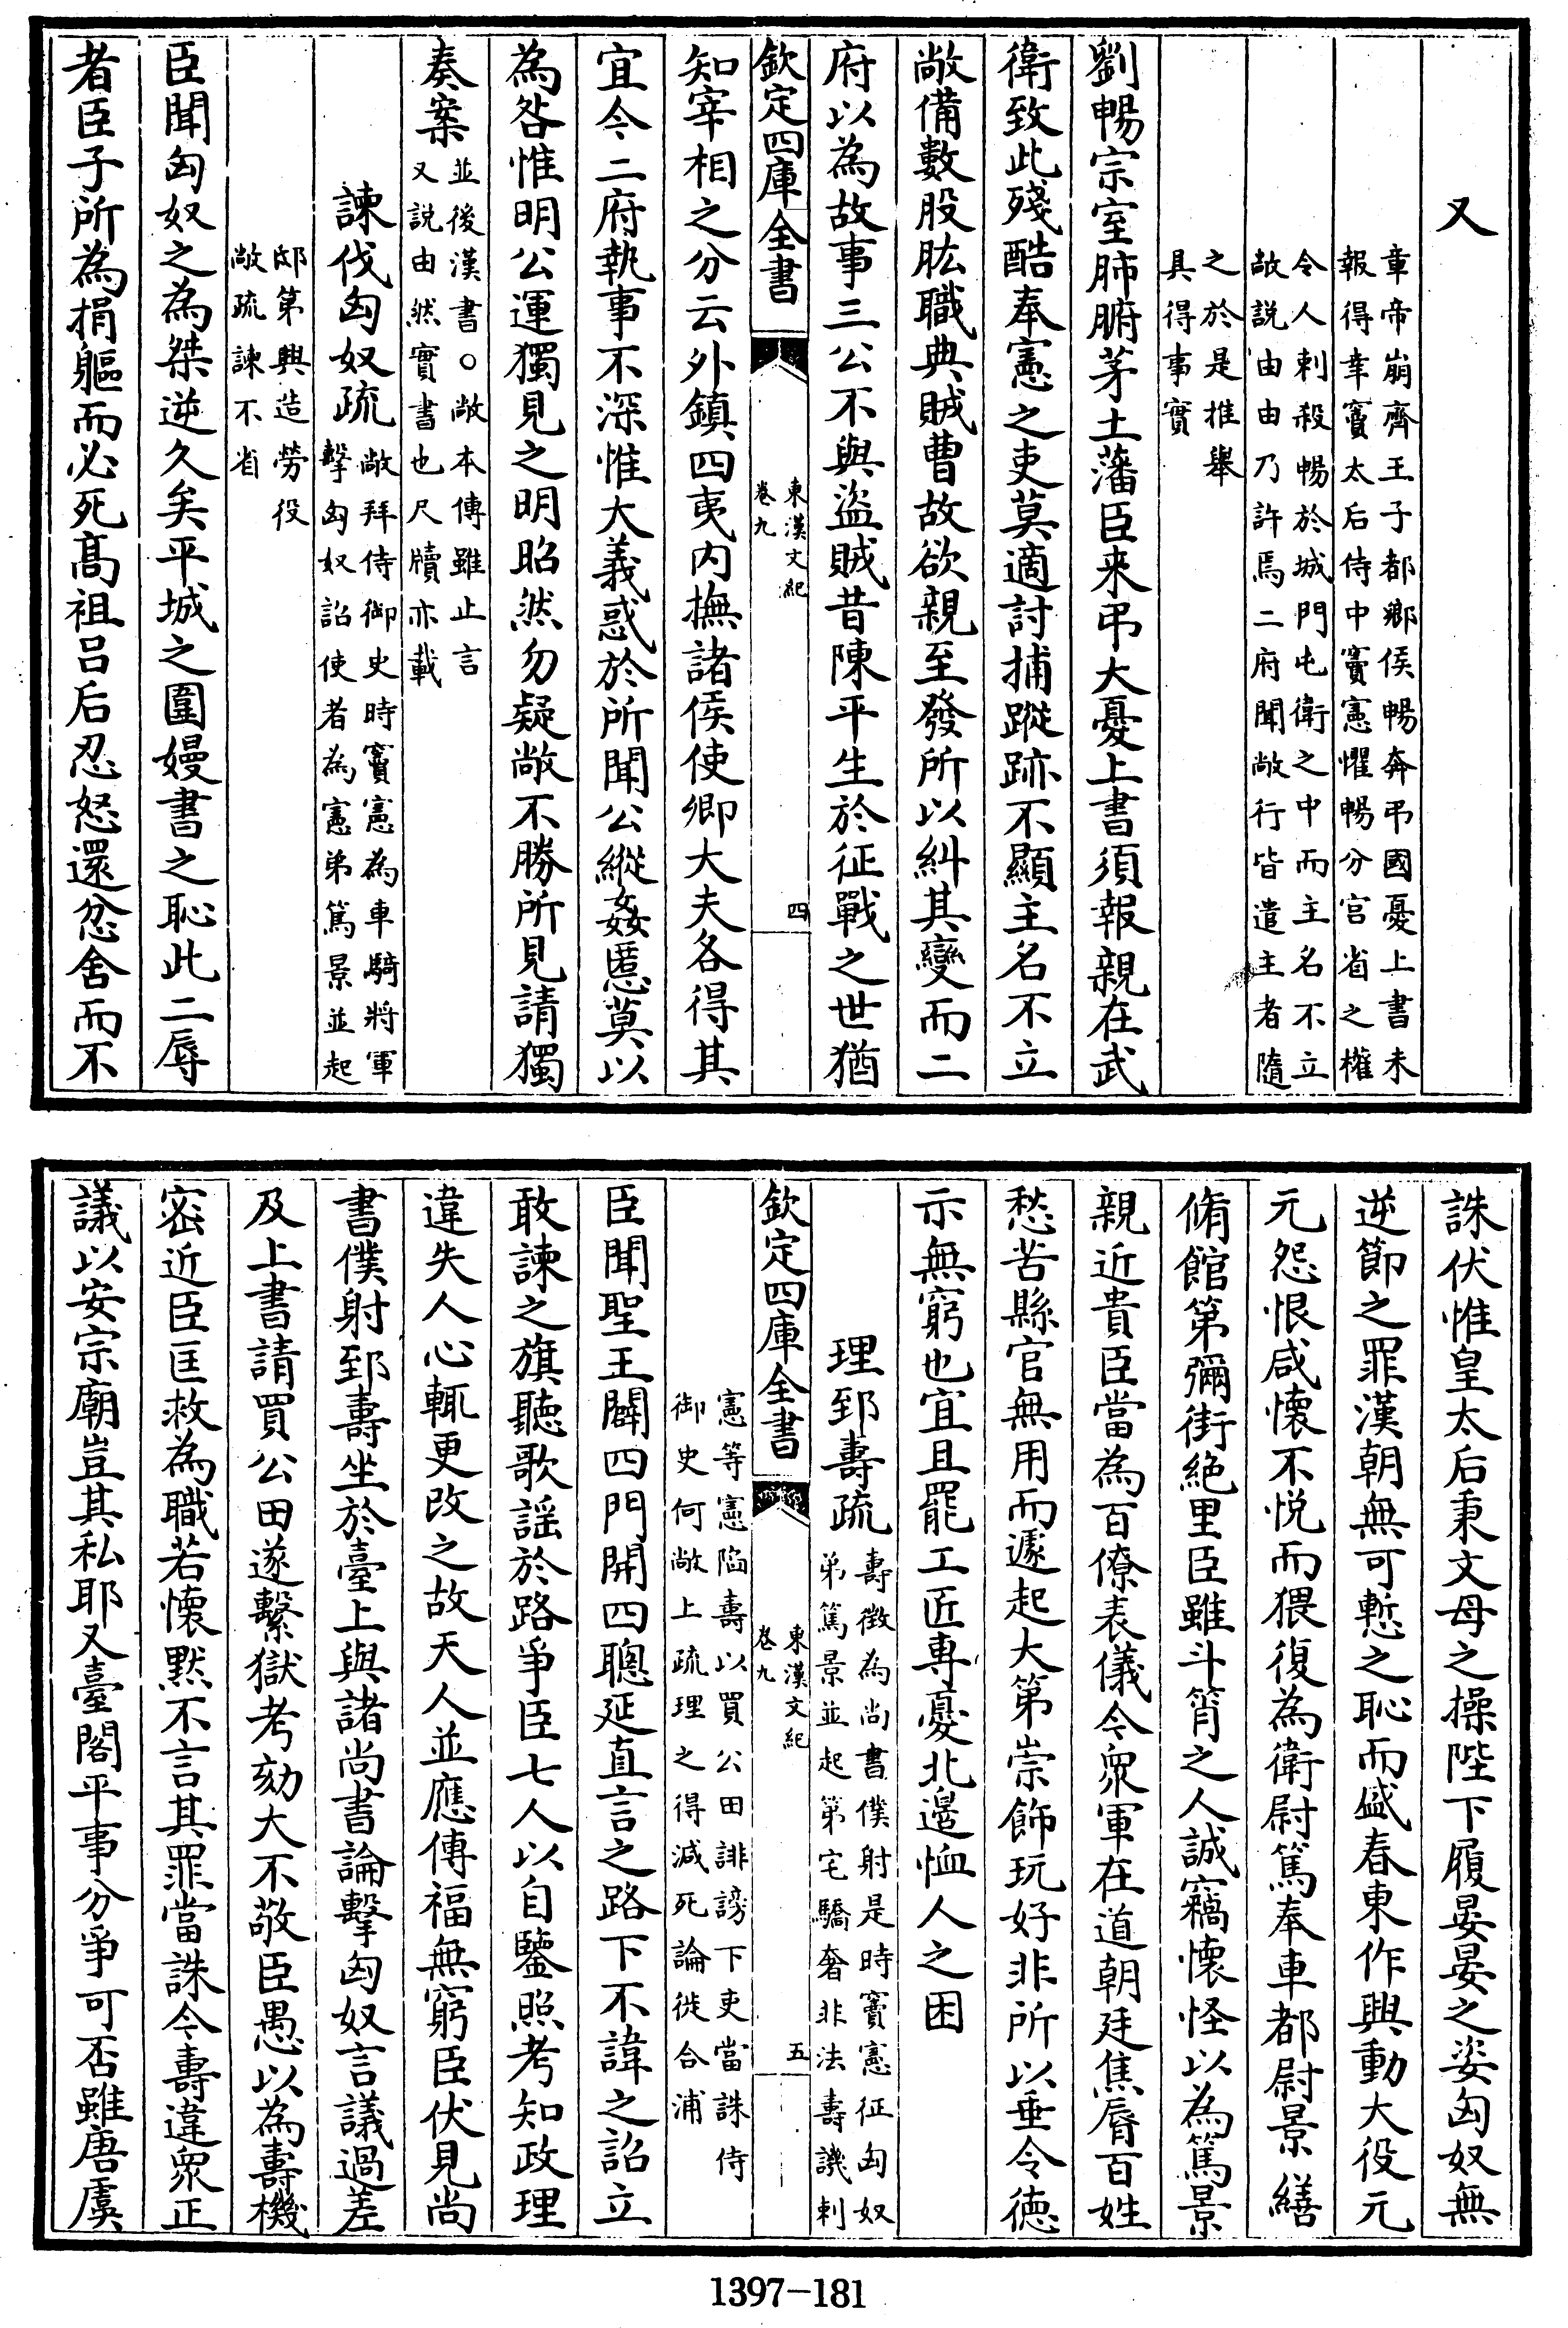 又
章帝崩齊王子都鄉侯暢奔弔國憂上書未
報得幸竇太后侍中竇憲懼暢分宫省之權
令人刺殺暢於城門屯衛之中而主名不立
敞説由由乃許焉二府聞敞行皆遣主者隨
之於是推舉
具得事實
劉暢宗室肺腑茅土藩臣来弔大憂上書須報親在武
衛致此殘酷奉憲之吏莫適討捕蹤跡不顯主名不立
敞備數股肱職典賊曹故欲親至發所以糾其變而二
府以為故事三公不與盜賊昔陳平生於征戰之世猶
欽定四庫全書
東漢文紀
卷九
四
知宰相之分云外鎮四夷内撫諸侯使卿大夫各得其
宜今二府執事不深惟大義惑於所聞公縱姦慝莫以
為咎惟明公運獨見之明昭然勿疑敞不勝所見請獨
奏案
並後漢書○敞本傳雖止言
又説由然實書也尺牘亦載
諫伐匈奴疏
敞拜侍御史時竇憲為車騎將軍
擊匈奴詔使者為憲弟篤景並起
邸第興造勞役
敞疏諫不省
臣聞匈奴之為桀逆久矣平城之圍嫚書之恥此二辱
者臣子所為捐軀而必死髙祖吕后忍怒還忿舍而不
誅伏惟皇太后秉文母之操陛下履晏晏之姿匈奴無
逆節之罪漢朝無可慙之恥而盛春東作興動大役元
元怨恨咸懷不悦而猥復為衛尉篤奉車都尉景繕
脩館第彌街絶里臣雖斗筲之人誠竊懷怪以為篤景
親近貴臣當為百僚表儀今衆軍在道朝廷焦脣百姓
愁苦縣官無用而遽起大第崇飾玩好非所以垂令德
示無窮也宜且罷工匠専憂北邉恤人之困
理郅壽疏
壽徴為尚書僕射是時竇憲征匈奴
弟篤景並起第宅驕奢非法壽譏刺
欽定四庫全書
東漢文紀
卷九
五
憲等憲陷壽以買公田誹謗下吏當誅侍
御史何敞上疏理之得減死論徙合浦
臣聞聖王闢四門開四聰延直言之路下不諱之詔立
敢諫之旗聽歌謡於路爭臣七人以自鑒照考知政理
違失人心輒更改之故天人並應傳福無窮臣伏見尚
書僕射郅壽坐於臺上與諸尚書論擊匈奴言議過差
及上書請買公田遂繫獄考劾大不敬臣愚以為壽機
密近臣匡救為職若懷黙不言其罪當誅今壽違衆正
議以安宗廟豈其私耶又臺閣平事分爭可否雖唐虞
1397-181